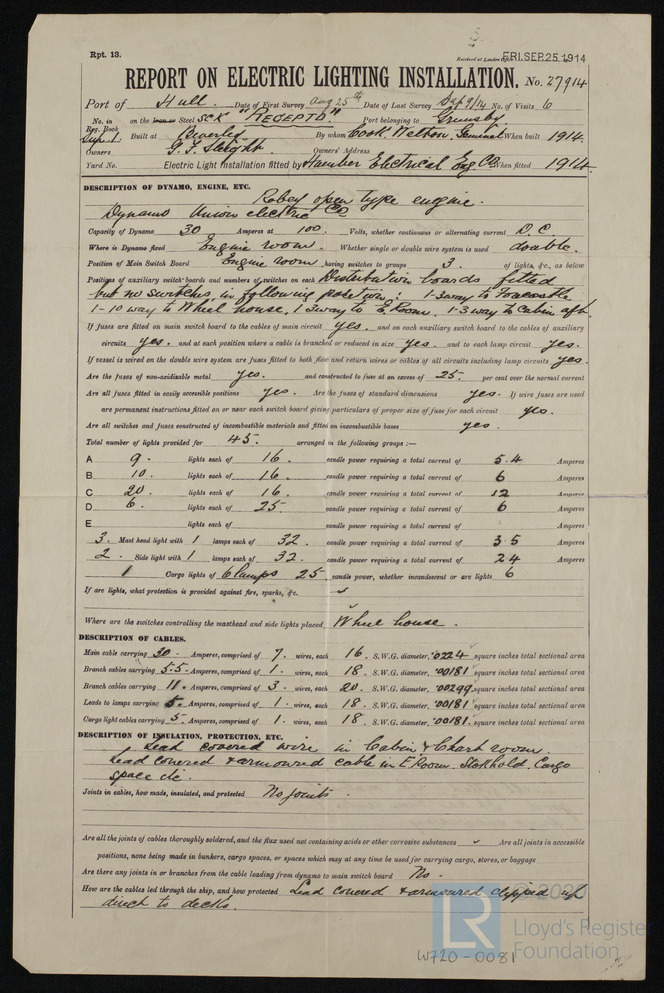 Rpt. 13.
Received at London Office FRI. SEP. 25 1914
REPORT ON ELECTRIC LIGHTING INSTALLATION. No. 27914
Port of Hull. Date of First Survey Aug 25th Date of Last Survey Sep 9/14 No. of Visits 6
No. in Reg. Book on the Iron or Steel SCK "RECEPTO." Port belonging to Grimsby
Sup. 1. Built at Beverley By whom Cook Welton, Gemmel When built 1914.
Owners G. F. Sleight. Owners' Address
Yard No. Electric Light Installation fitted by Humber Electrical Eng Co. When fitted 1914.
DESCRIPTION OF DYNAMO, ENGINE, ETC.
Robey open type engine.
Dynamo Union electric Co
Capacity of Dynamo 30 Amperes at 100. Volts, whether continuous or alternating current D.C.
Where is Dynamo fixed Engine room. Whether single or double wire system is used double.
Position of Main Switch Board Engine room, having switches to groups 3. of lights, &c., as below
Positions of auxiliary switch boards and numbers of switches on each Distribution boards fitted
but no switches, in following positions: 1-3 way to Forcastle
1-10 way to Wheel house, 1 3 way to E. Room. 1-3 way to Cabin aft.
If fuses are fitted on main switch board to the cables of main circuit yes. and on each auxiliary switch board to the cables of auxiliary
circuits yes. and at each position where a cable is branched or reduced in size yes. and to each lamp circuit yes.
If vessel is wired on the double wire system are fuses fitted to both flow and return wires or cables of all circuits including lamp circuits yes.
Are the fuses of non-oxidizable metal yes. and constructed to fuse at an excess of 25. per cent over the normal current
Are all fuses fitted in easily accessible positions yes. Are the fuses of standard dimensions yes. If wire fuses are used
are permanent instructions fitted on or near each switch board giving particulars of proper size of fuse for each circuit yes.
Are all switches and fuses constructed of incombustible materials and fitted on incombustible bases yes.
Total number of lights provided for 45. arranged in the following groups :—
A 9. lights each of 16. candle power requiring a total current of 5.4 Amperes
B 10. lights each of 16. candle power requiring a total current of 6 Amperes
C 20. lights each of 16. candle power requiring a total current of 12 Amperes
D 6. lights each of 25. candle power requiring a total current of 6 Amperes
E lights each of candle power requiring a total current of Amperes
3. Mast head light with 1 lamps each of 32. candle power requiring a total current of 3.5 Amperes
2. Side light with 1 lamps each of 32. candle power requiring a total current of 2.4 Amperes
1 Cargo lights of 6 lamps 25 candle power, whether incandescent or arc lights 6
If arc lights, what protection is provided against fire, sparks, &c. ✓
Where are the switches controlling the masthead and side lights placed Wheel house.
DESCRIPTION OF CABLES.
Main cable carrying 30. Amperes, comprised of 7. wires, each 16. S.W.G. diameter, .0224 square inches total sectional area
Branch cables carrying 5.5. Amperes, comprised of 1. wires, each 18. S.W.G. diameter, .00181 square inches total sectional area
Branch cables carrying 11. Amperes, comprised of 3. wires, each 20. S.W.G. diameter, .00299 square inches total sectional area
Leads to lamps carrying 5. Amperes, comprised of 1. wires, each 18. S.W.G. diameter, .00181 square inches total sectional area
Cargo light cables carrying 5. Amperes, comprised of 1. wires, each 18. S.W.G. diameter, .00181. square inches total sectional area
DESCRIPTION OF INSULATION, PROTECTION, ETC.
Lead covered wire in Cabin & Chart room.
Lead covered & armoured cable in E. Room. Stokhold. Cargo
space &c.
Joints in cables, how made, insulated, and protected No joints.
Are all the joints of cables thoroughly soldered, and the flux used not containing acids or other corrosive substances ✓ Are all joints in accessible
positions, none being made in bunkers, cargo spaces, or spaces which may at any time be used for carrying cargo, stores, or baggage
Are there any joints in or branches from the cable leading from dynamo to main switch board No.
How are the cables led through the ship, and how protected Lead covered & armoured clipped up
direct to decks.
© 2020
LR Lloyd's Register
Foundation
W720-0081